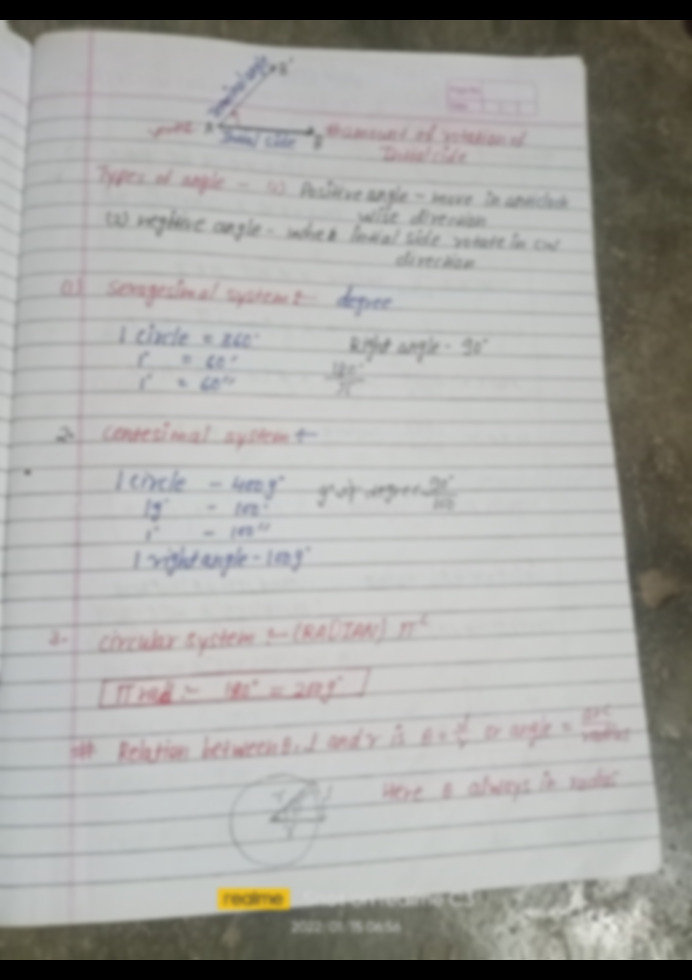 Terminal side
B
A
Initial side
amount of rotation of
Initial side
Types of angle - (1) Positive angle - move in anticlock
wise direction
(2) negtive angle - when Initial side rotate in cw
direction
(1) Sexagesimal system :- degree
1 circle = 360° Right angle - 90°
1° = 60'
1' = 60"
2. Centesimal system :-
1 circle - 400g
1g - 100'
1' - 100"
1 right angle - 100g
3. Circular system :- (RADIAN) π^c
π rad :- 180° = 200g
Relation between θ, l and r is θ = l/r or angle = arc/radius
Here θ always in
realme
2022/01/15 06:56